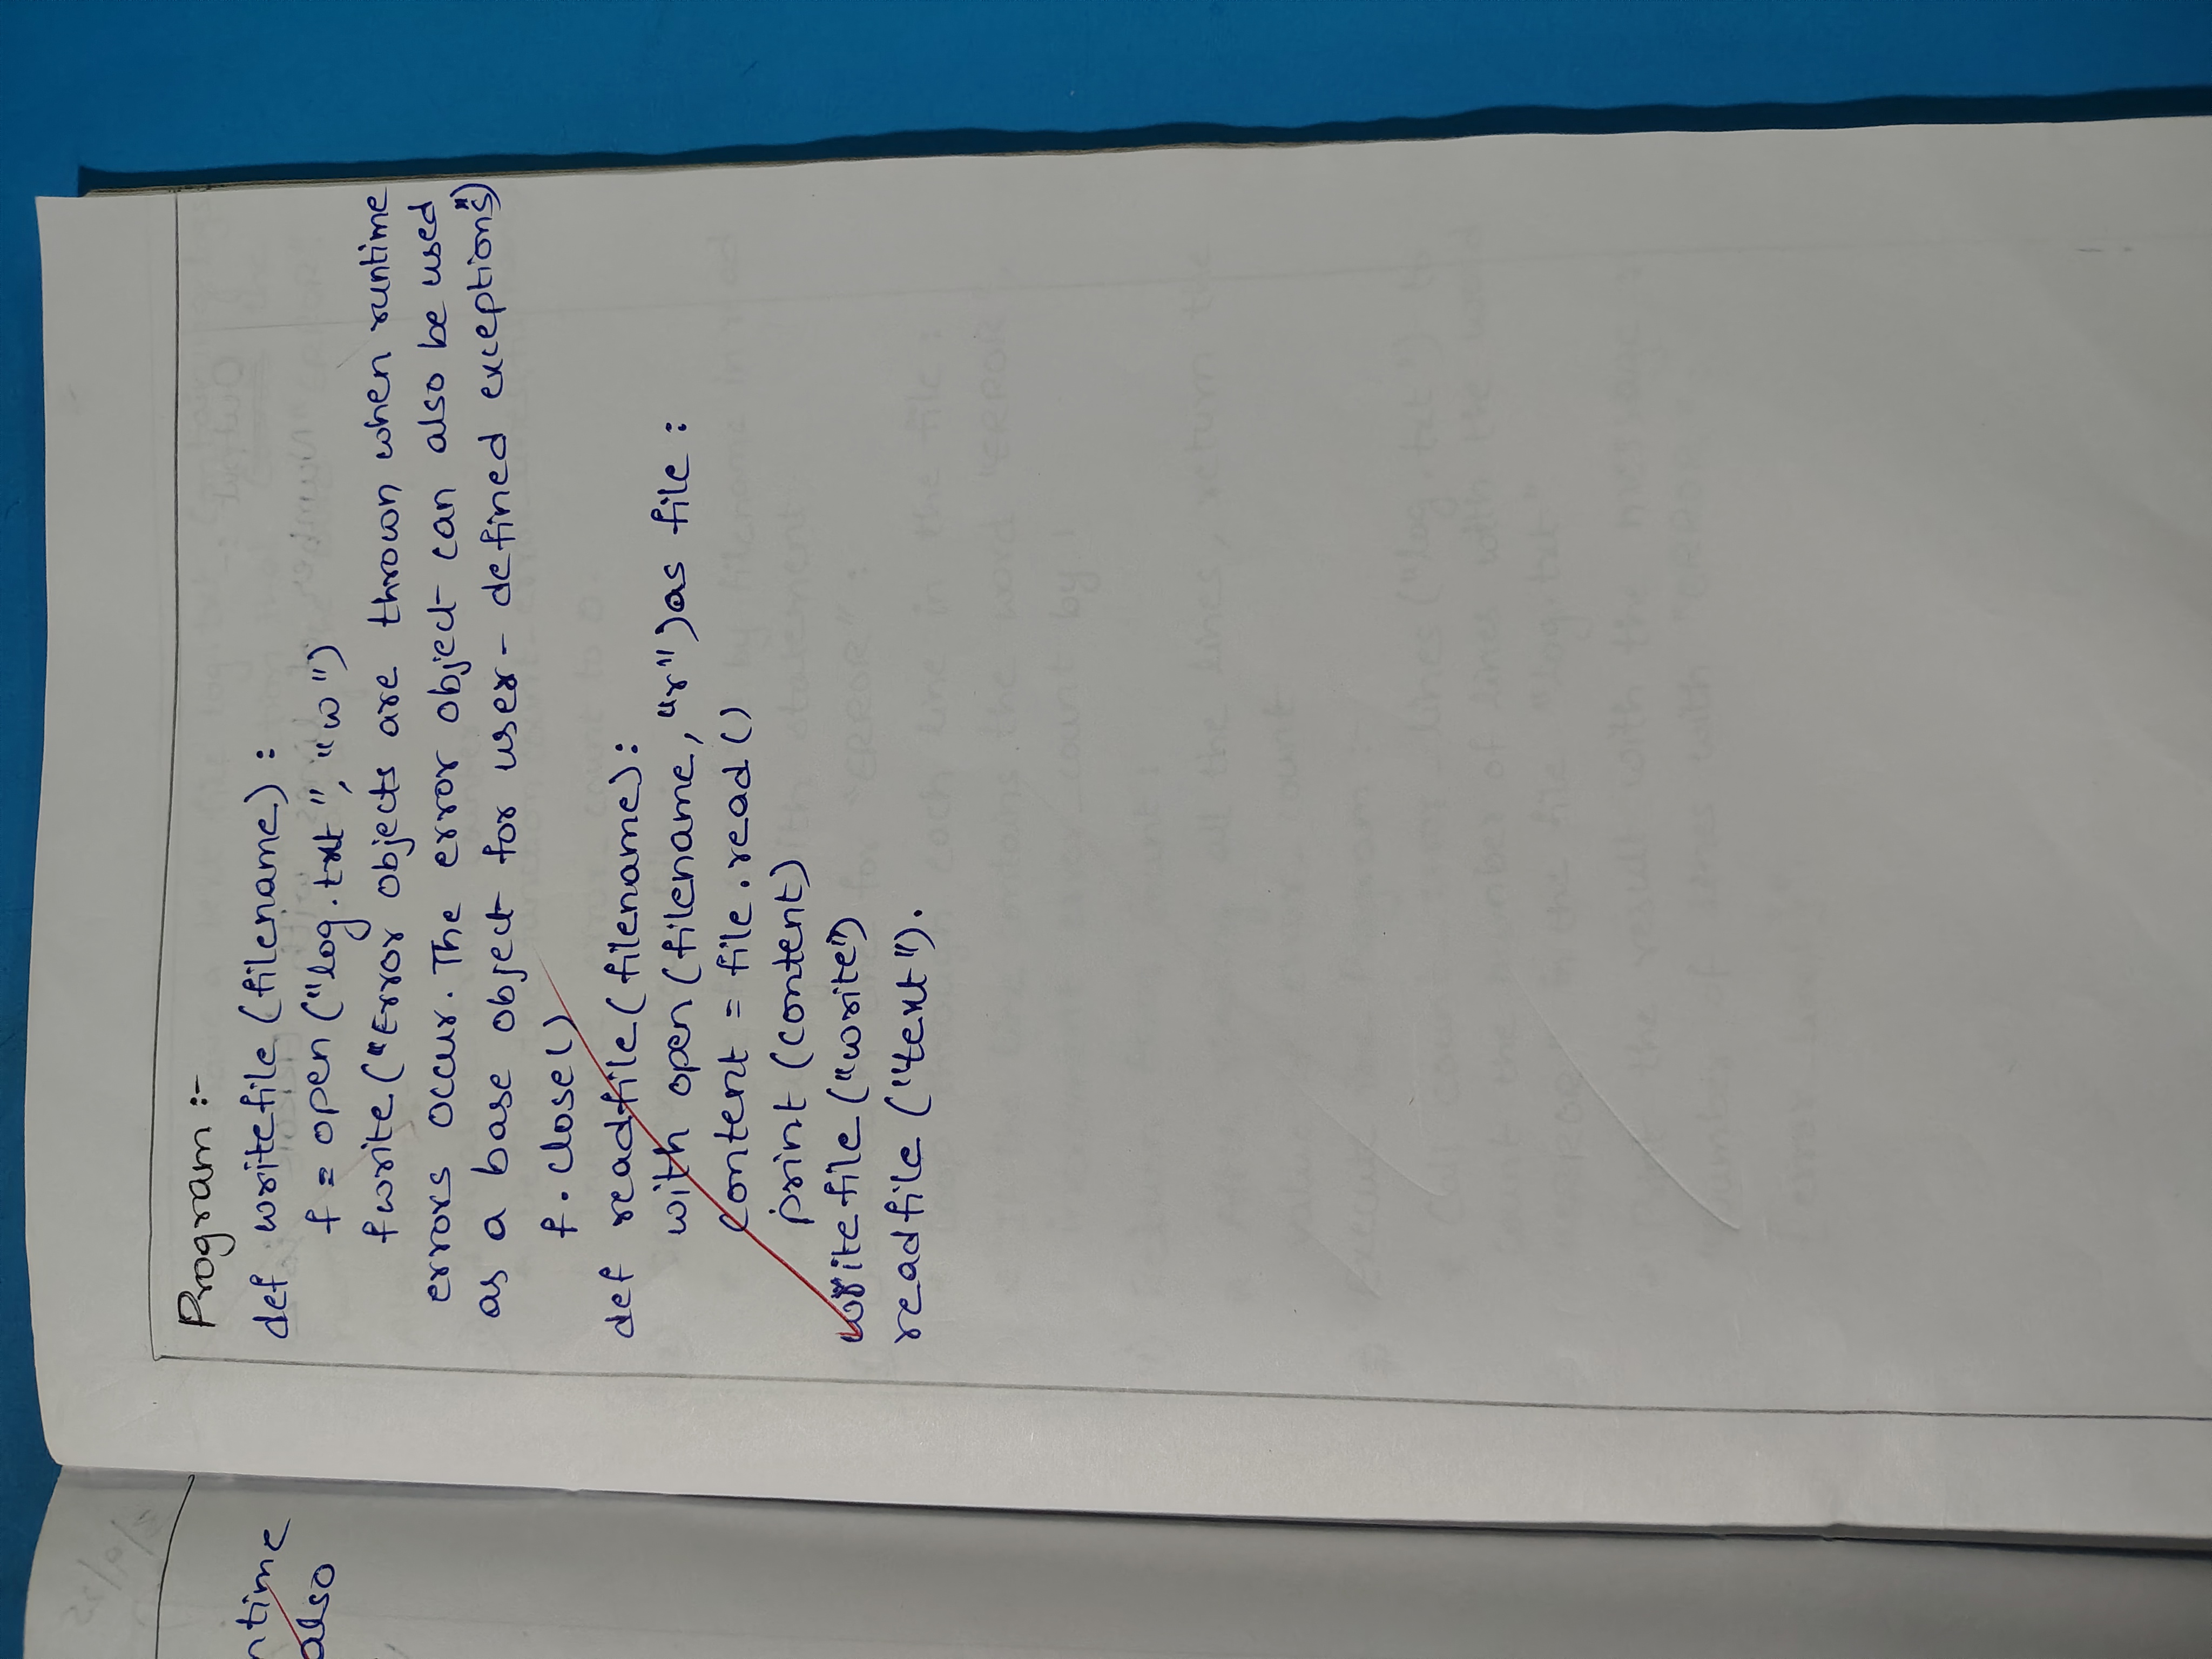 ntime
also
Program :-
def writefile (filename) :
f = open ("log.txt", "w")
fwrite ("Error objects are thrown when runtime
errors occur. The error object can also be used
as a base object for user - defined exceptions")
f. close()
def readfile (filename) :
with open (filename, "r") as file :
content = file . read ()
print (content)
writefile ("write")
readfile ("text").